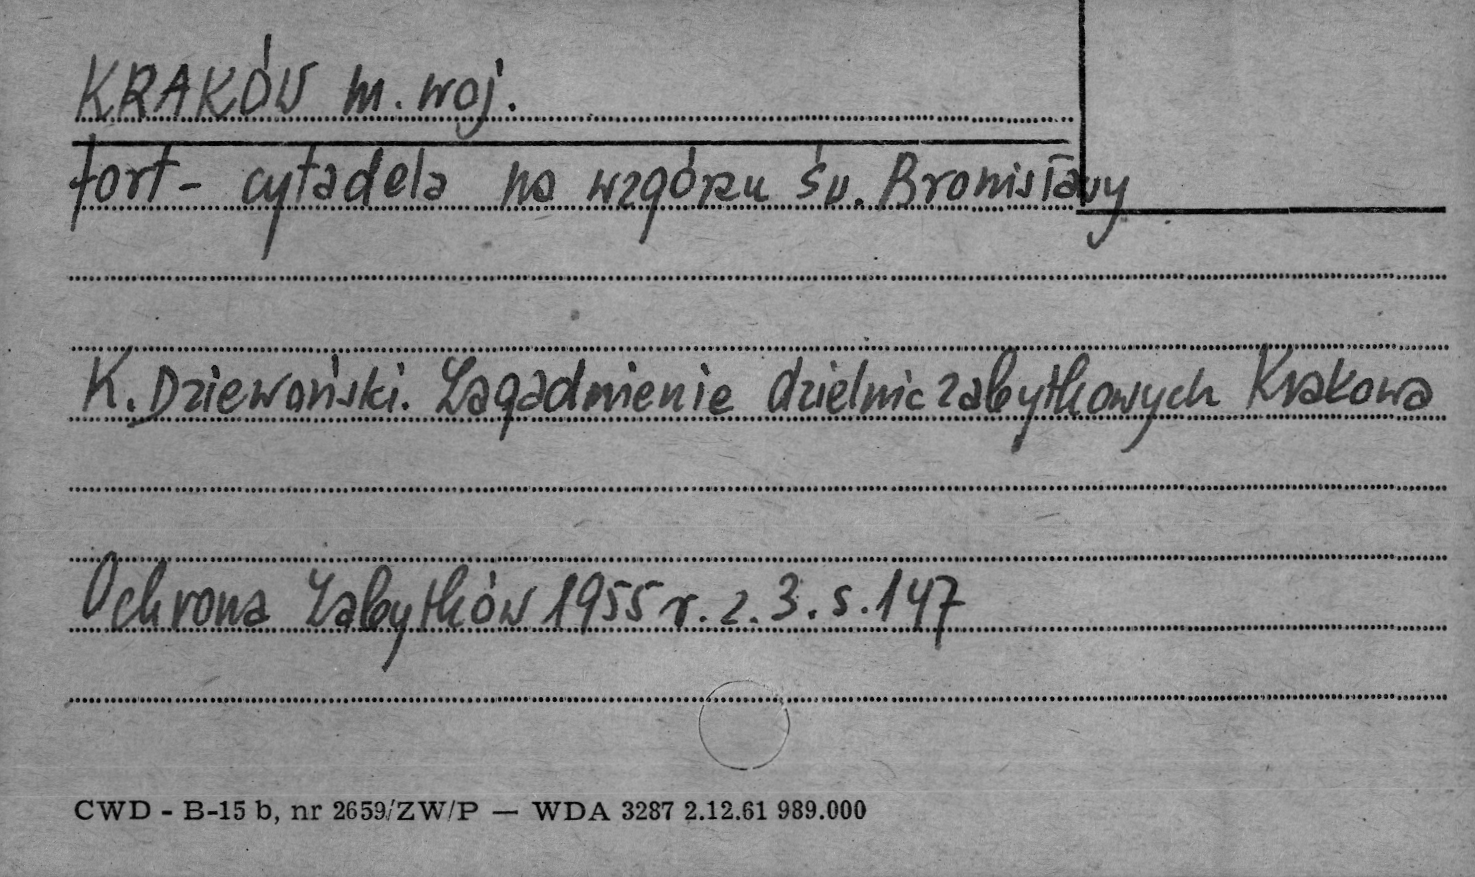 KRAKÓW m. woj.
fort - cytadela na wzgórzu św. Bronisławy
K. Dziewoński. Zagadnienie dzielnic zabytkowych Krakowa
Ochrona Zabytków 1955 r. z. 3. s. 147
CWD - B-15 b, nr 2659/ZW/P — WDA 3287 2.12.61 989.000